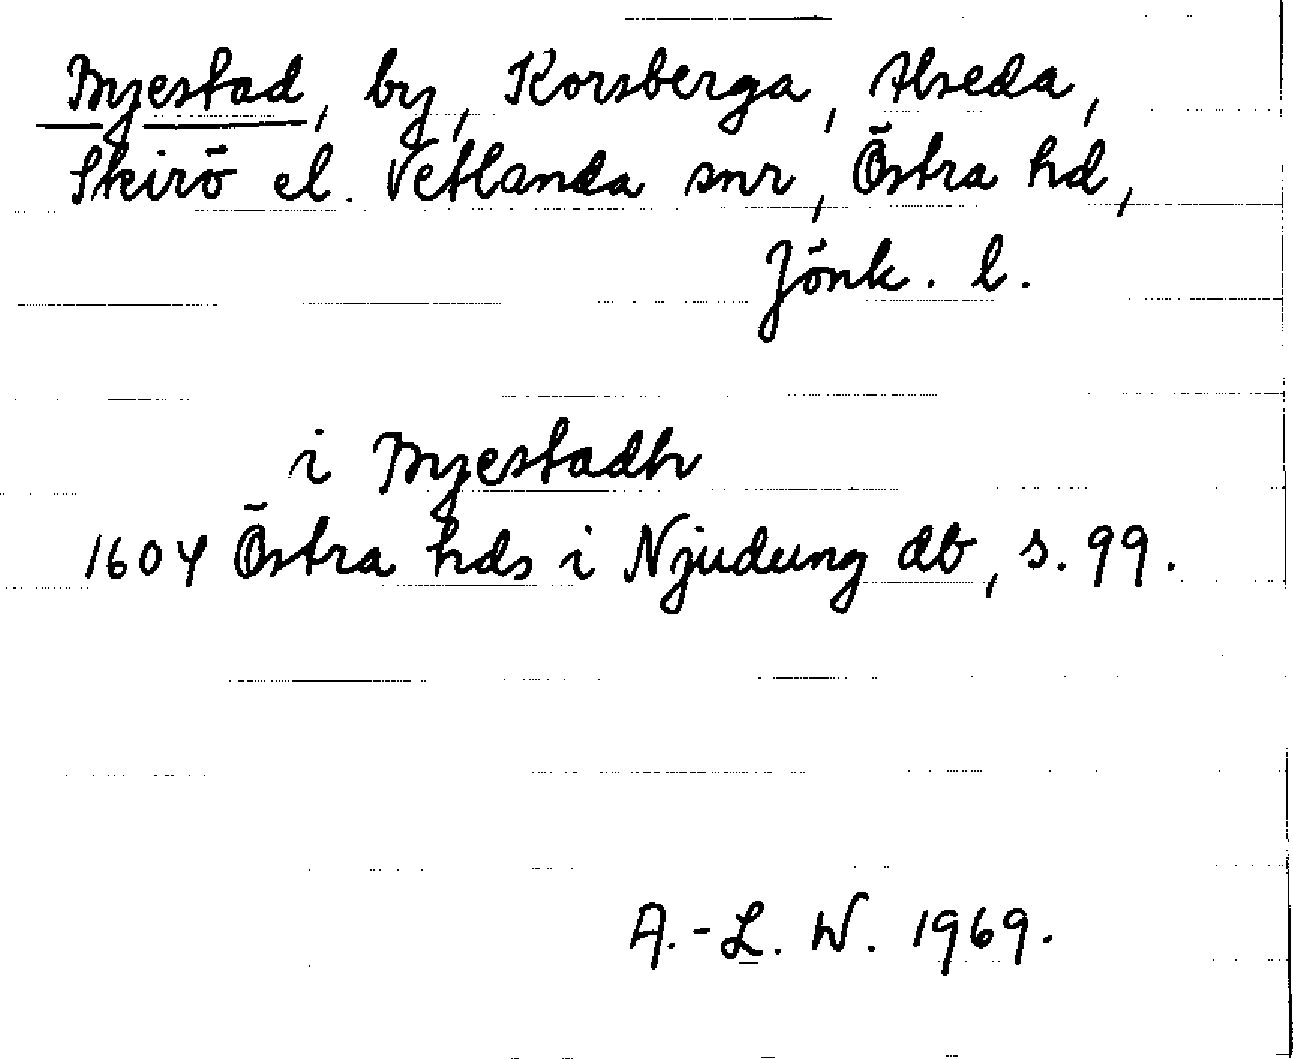 Myestad, by, Korsberga, Alseda,
Skirö el. Vetlanda snr, Östra hd,
Jönk. l.
i Myestadh
1604 Östra hds i Njudung db, s. 99.
A.-L. W. 1969.